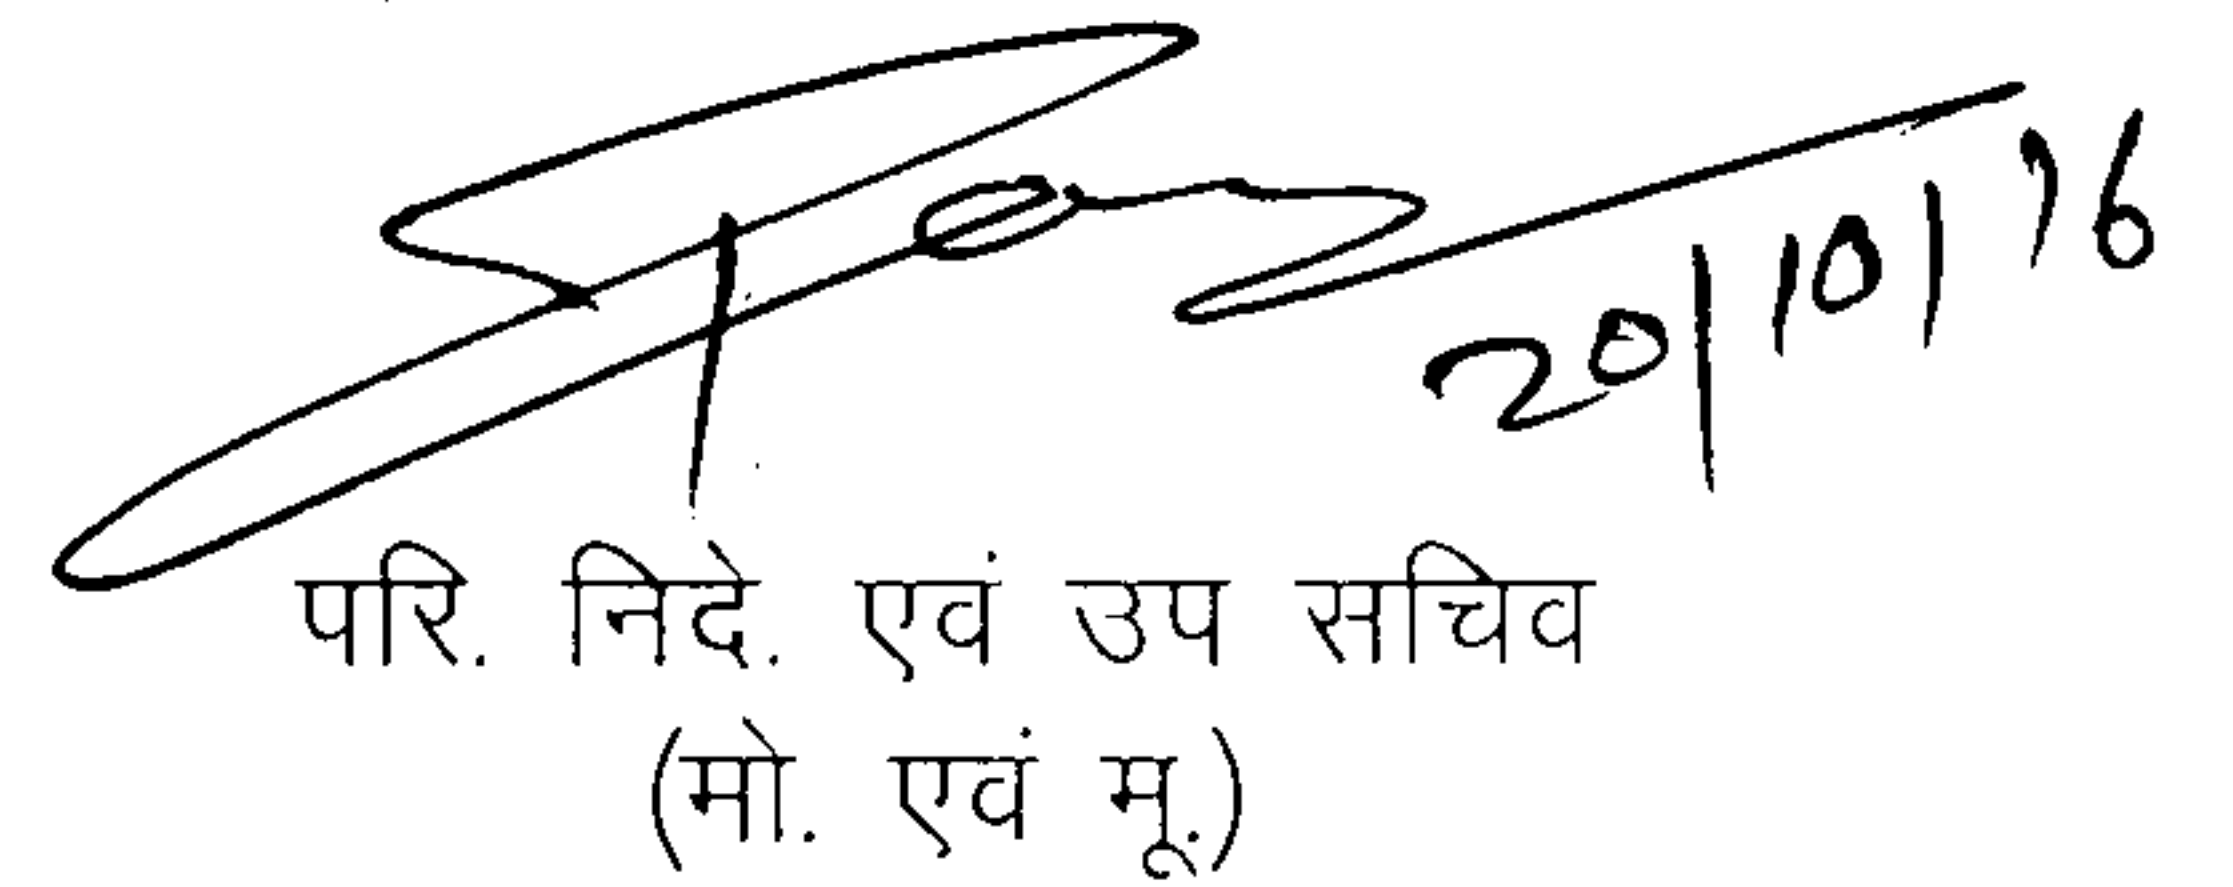 20/10/16
परि. निदे. एवं उप सचिव
(मो. एवं मू.)